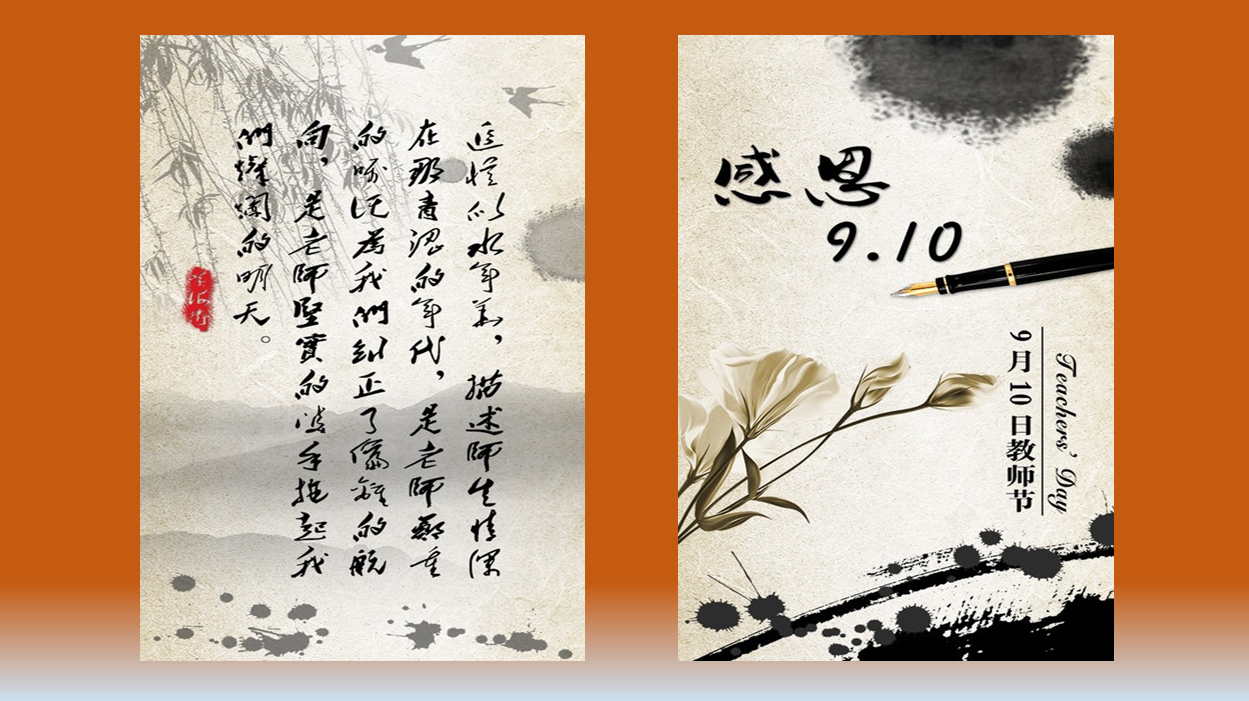 追憶似水年華，描述師生情深
在那青澀的年代，是老師鄭重
的囑託為我們糾正了偏離的航
向，是老師堅實的雙手拖起我
們燦爛的明天。
感恩
9.10
Teachers' Day
9月10日教师节